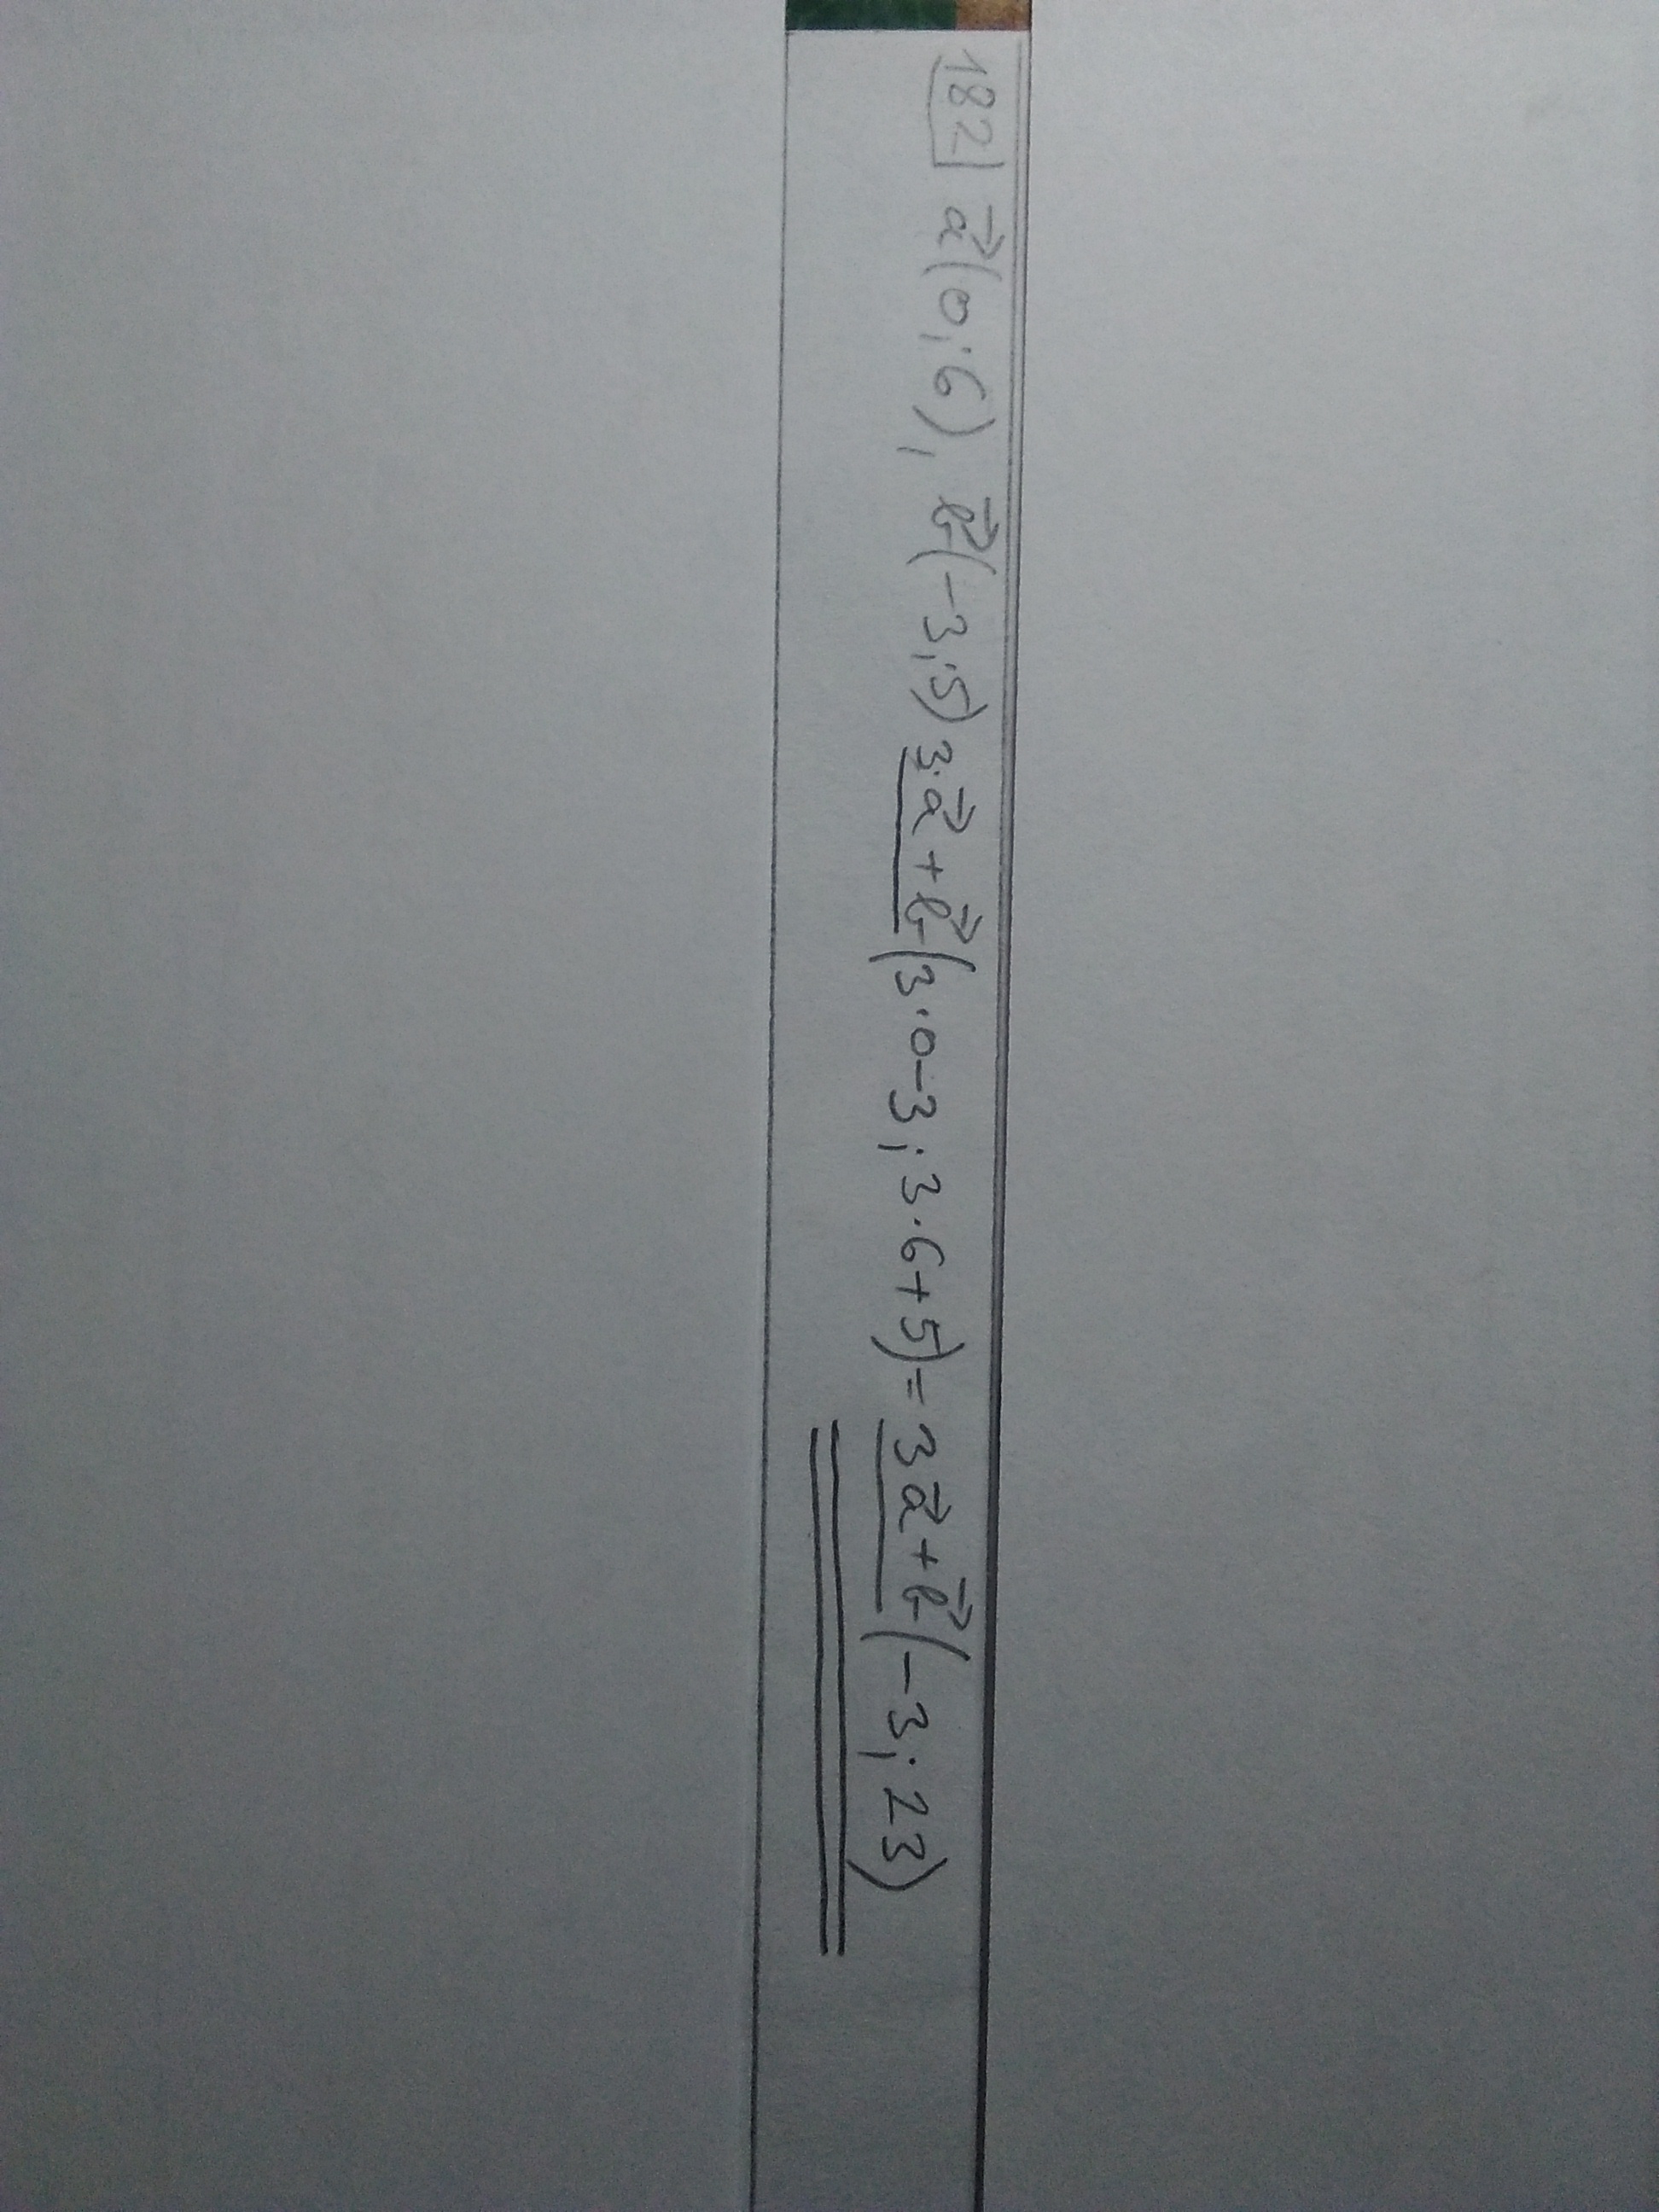 182 a⃗(0;6), b⃗(-3;5) 3·a⃗+b⃗(3·0-3;3·6+5)=3a⃗+b⃗(-3;23)